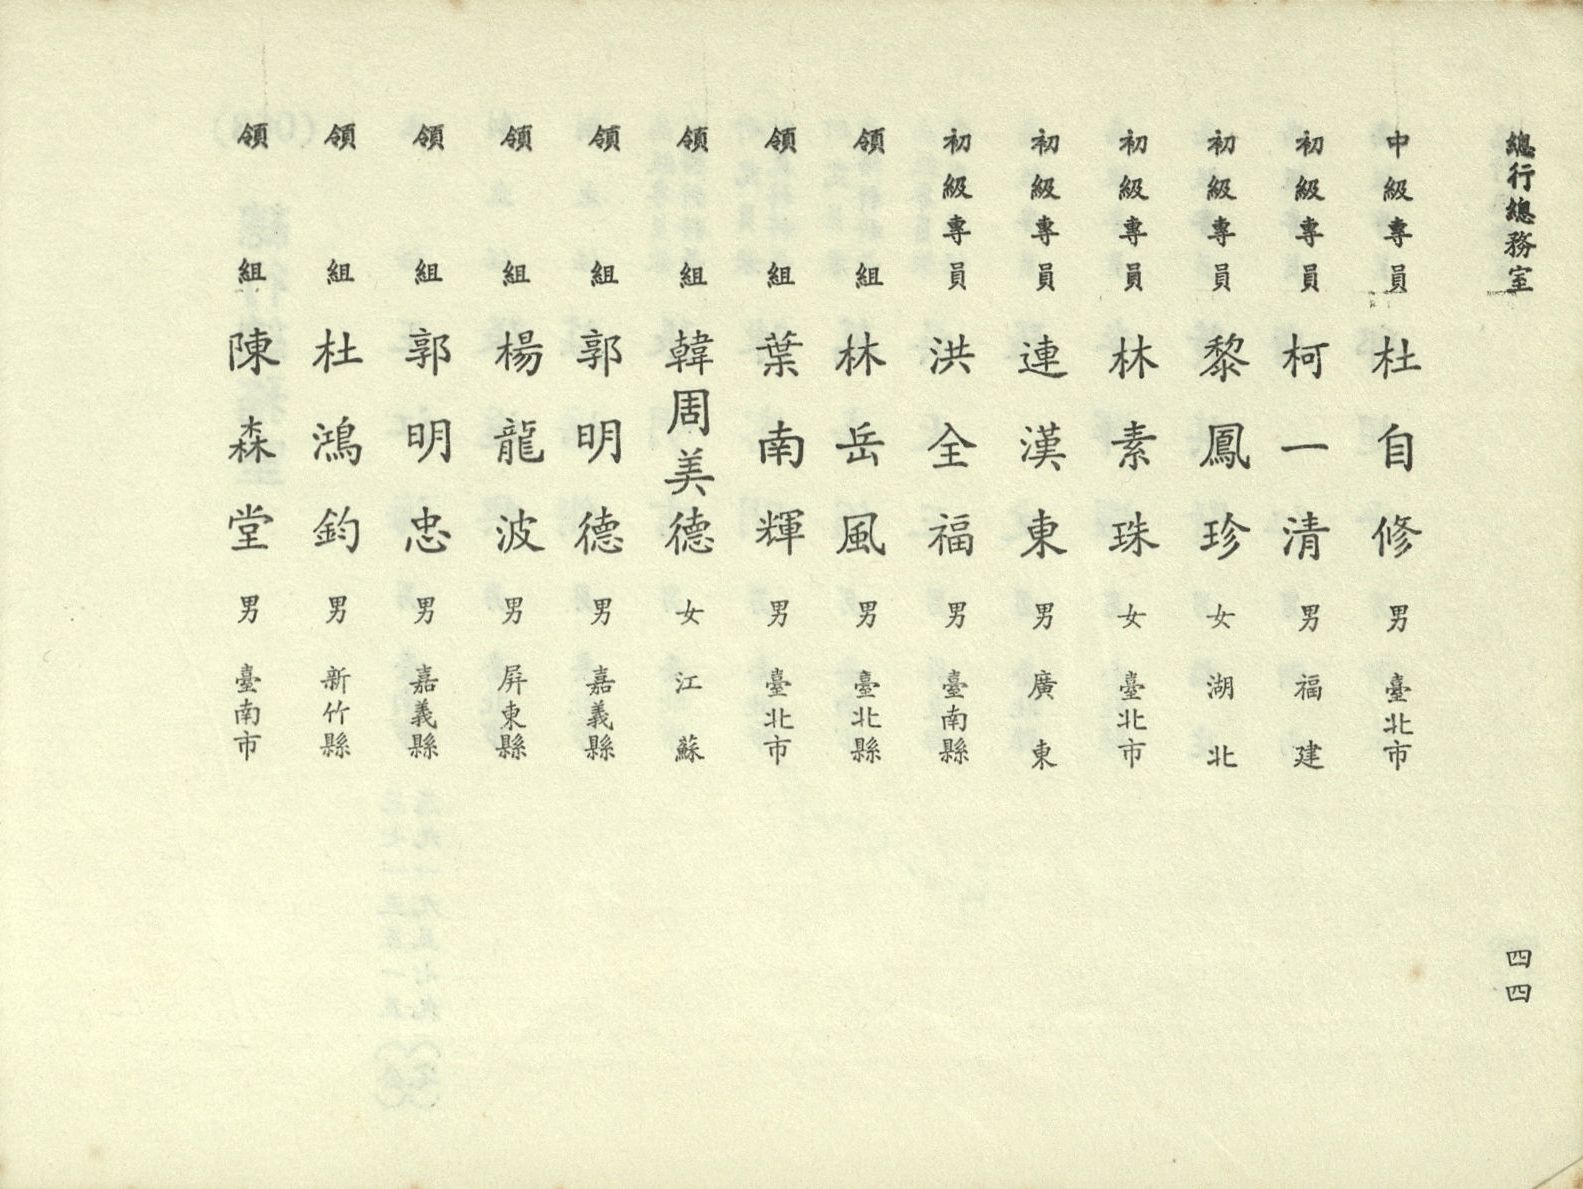 總行總務室
四四
中級專員 杜自修 男 臺北市
初級專員 柯一清 男 福建
初級專員 黎鳳珍 女 湖北
初級專員 林素珠 女 臺北市
初級專員 連漢東 男 廣東
初級專員 洪全福 男 臺南縣
領組 林岳風 男 臺北縣
領組 葉南輝 男 臺北市
領組 韓周美德 女 江蘇
領組 郭明德 男 嘉義縣
領組 楊龍波 男 屏東縣
領組 郭明忠 男 嘉義縣
領組 杜鴻鈞 男 新竹縣
領組 陳森堂 男 臺南市